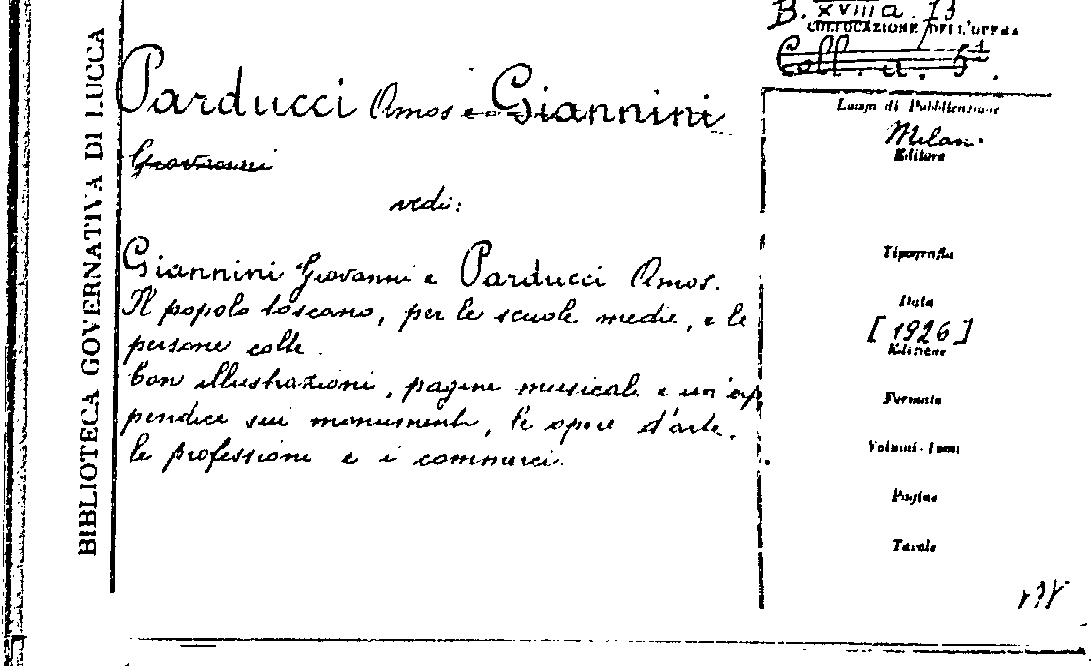 B. XVIII a. 73
COLLOCAZIONE DELL'OPERA
Coll. a. 51.
BIBLIOTECA GOVERNATIVA DI LUCCA
Parducci Amos e Giannini
Giovanni
vedi:
Giannini Giovanni e Parducci Amos.
Il popolo toscano, per le scuole medie, e le
persone colte.
Con illustrazioni, pagine musicali e un'ap
pendice sui monumenti, le opere d'arte,
le professioni e i commerci.
Luogo di Pubblicazione
Milano
Editore
Tipografia
Data
[1926]
Edizione
Formato
Volumi - Tomi
Pagine
Tavole